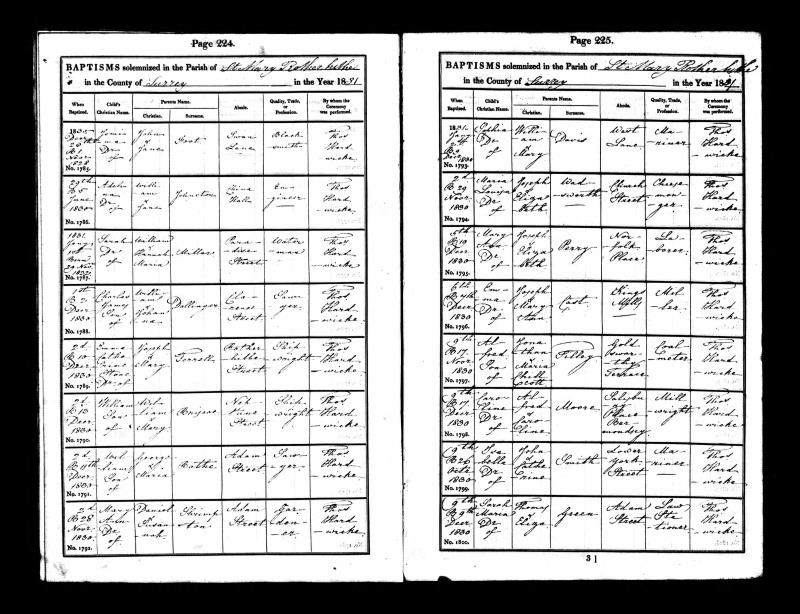 Page 224.
BAPTISMS solemnized in the Parish of St. Mary Rotherhithe
in the County of Surrey in the Year 1831
When Baptized.
Child's Christian Name.
Parents Name.
Christian.
Surname.
Abode.
Quality, Trade, or Profession.
By whom the Ceremony was performed.
1830
Decr
26th
B 1
Novr
1828
No. 1785.
Jemi
ma
Dr
of
John
&
Jane
Swan
Lane
Black
smith
Thos
Hard
wicke
29th
B 5
June
1830
No. 1786.
Dr
of
Willi
am
&
Jane
Johnston
China
Walk
En
gineer
Thos
Hard
wicke
1831
Jany
No. 1787.
Sarah
Dr
of
William
&
Hannah
Maria
Millar
Para
dise
Street
Water
man
Thos
Hard
wicke
1st
B 2
Decr
1830
No. 1788.
Charles
James
Son
of
Willi
am
&
Johan
na
Dallinger
Cla
rence
Street
Saw
yer
Thos
Hard
wicke
2d
B 10
Decr
1830
No. 1789.
Emma
Cathe
rine
Dr of
Joseph
&
Mary
Terrell
Rother
hithe
Street
Ship
wright
Thos
Hard
wicke
2d
B 13
Decr
1830
No. 1790.
William
Son
of
Wil
liam
&
Mary
Nep
tune
Street
Ship
wright
Thos
Hard
wicke
2d
Decr
1830
No. 1791.
Wil
liam
Son
of
George
&
Maria
Adam
Street
Saw
yer
Thos
Hard
wicke
2d
B 28
Novr
1830
No. 1792.
Mary
Ann
Dr
of
Daniel
&
Susan
nah
Shrimp
ton
Adam
Street
Gar
den
er
Thos
Hard
wicke
Page 225.
BAPTISMS solemnized in the Parish of St. Mary Rotherhithe
in the County of Surrey in the Year 1831
When Baptized.
Child's Christian Name.
Parents Name.
Christian.
Surname.
Abode.
Quality, Trade, or Profession.
By whom the Ceremony was performed.
1831
Jany
2d
Decr 1830
No. 1793.
Sophia
Dr
of
Willi
am
&
Mary
Davis
West
Lane
Ma
riner
Thos
Hard
wicke
2d
B 29
Novr
1830
No. 1794.
Maria
Louisa
Dr
of
Joseph
&
Eliza
beth
Wad
sworth
Church
Street
Cheese
mon
ger
Thos
Hard
wicke
5th
B 10
Decr
1830
No. 1795.
Mary
Ann
Dr
of
Joseph
&
Eliza
beth
Perry
Nor
folk
Place
La
borer
Thos
Hard
wicke
6th
Decr
1830
No. 1796.
Em
ma
Dr
of
Joseph
&
Mary
Ann
East
Kings
Mills
Mil
ler
Thos
Hard
wicke
9th
B 17
Novr
1830
No. 1797.
Al
fred
Son
of
Jona
than
&
Maria
Scott
Tilley
Gold
swor
thy
Terrace
Coal
meter
Thos
Hard
wicke
9th
B 17
Decr
1830
No. 1798.
Caro
line
Dr
of
Al
fred
&
Caro
line
Moore
Place
Ber
mondsey
Mill
wright
Thos
Hard
wicke
9th
B 26
Octr
1830
No. 1799.
Isa
bella
Dr
of
John
&
Cathe
rine
Smith
Lower
York
Street
Ma
riner
Thos
Hard
wicke
9th
B 9th
Decr
1830
No. 1800.
Sarah
Maria
Dr
of
Thomas
&
Eliza
Green
Adam
Street
Law
Sta
tioner
Thos
Hard
wicke
31